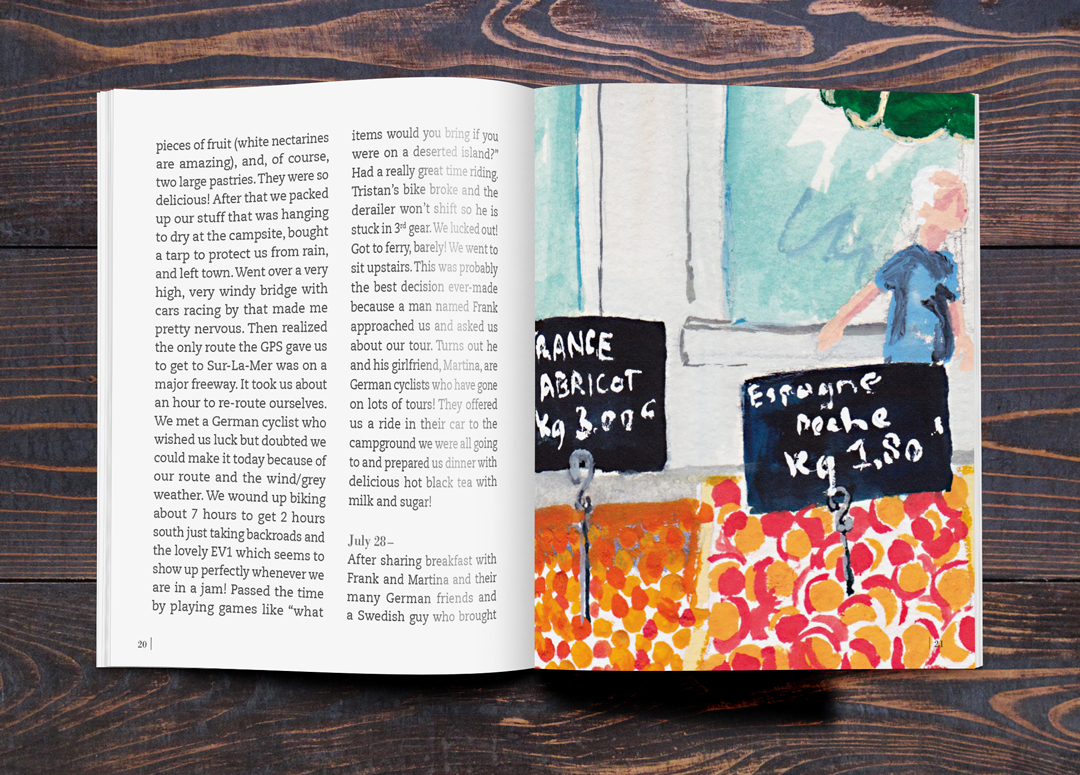 pieces of fruit (white nectarines
are amazing), and, of course,
two large pastries. They were so
delicious! After that we packed
up our stuff that was hanging
to dry at the campsite, bought
a tarp to protect us from rain,
and left town. Went over a very
high, very windy bridge with
cars racing by that made me
pretty nervous. Then realized
the only route the GPS gave us
to get to Sur-La-Mer was on a
major freeway. It took us about
an hour to re-route ourselves.
We met a German cyclist who
wished us luck but doubted we
could make it today because of
our route and the wind/grey
weather. We wound up biking
about 7 hours to get 2 hours
south just taking backroads and
the lovely EV1 which seems to
show up perfectly whenever we
are in a jam! Passed the time
by playing games like “what
items would you bring if you
were on a deserted island?”
Had a really great time riding.
Tristan’s bike broke and the
derailer won’t shift so he is
stuck in 3rd gear. We lucked out!
Got to ferry, barely! We went to
sit upstairs. This was probably
the best decision ever-made
because a man named Frank
approached us and asked us
about our tour. Turns out he
and his girlfriend, Martina, are
German cyclists who have gone
on lots of tours! They offered
us a ride in their car to the
campground we were all going
to and prepared us dinner with
delicious hot black tea with
milk and sugar!
July 28–
After sharing breakfast with
Frank and Martina and their
many German friends and
a Swedish guy who brought
20
RANCE
ABRICOT
Kg 3.00€
Espagne
peche
Kg 1,80
21